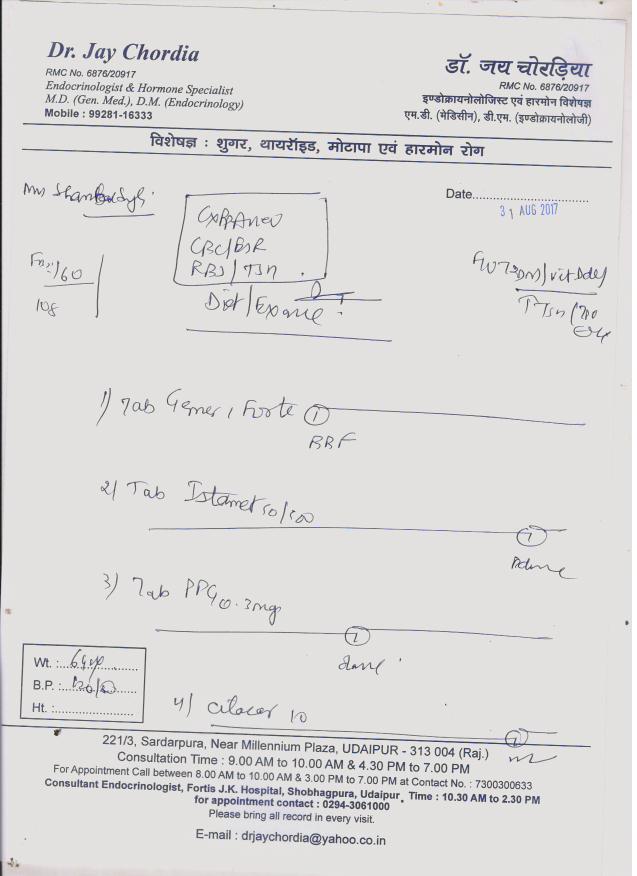 Dr. Jay Chordia
RMC No. 6876/20917
Endocrinologist & Hormone Specialist
M.D. (Gen. Med.), D.M. (Endocrinology)
Mobile : 99281-16333
डॉ. जय चोरड़िया
RMC No. 6876/20917
इण्डोक्रायनोलोजिस्ट एवं हारमोन विशेषज्ञ
एम.डी. (मेडिसीन), डी.एम. (इण्डोक्रायनोलोजी)
विशेषज्ञ : शुगर, थायरॉइड, मोटापा एवं हारमोन रोग
Date
31 AUG 2017
CBC/
RBS/TSH
/60
108
Diet/
1) Tab Gemer 1 Forte 1
BBF
2) Tab Istamet 50/500
1
3) Tab PPG 0.3mg
1
Wt. :
B.P. :
Ht. :
4) Cilacar 10
1
221/3, Sardarpura, Near Millennium Plaza, UDAIPUR - 313 004 (Raj.)
Consultation Time : 9.00 AM to 10.00 AM & 4.30 PM to 7.00 PM
For Appointment Call between 8.00 AM to 10.00 AM & 3.00 PM to 7.00 PM at Contact No. : 7300300633
Consultant Endocrinologist, Fortis J.K. Hospital, Shobhagpura, Udaipur, Time : 10.30 AM to 2.30 PM
for appointment contact : 0294-3061000
Please bring all record in every visit.
E-mail : drjaychordia@yahoo.co.in